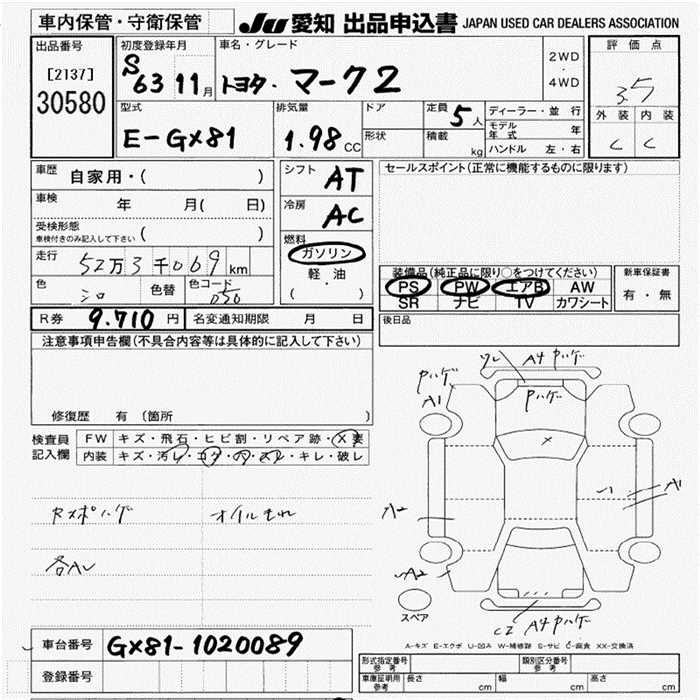 車内保管・守衛保管
JU 愛知 出品申込書 JAPAN USED CAR DEALERS ASSOCIATION
出品番号
[2137]
30580
初度登録年月
S63 11月
車名・グレード
トヨタ・マーク2
2WD
・
4WD
評価点
3.5
外装 内装
C C
型式
E-GX81
排気量
1.98 CC
ドア
形状
定員 5人
積載 kg
ディーラー・並行
モデル年式 年
ハンドル 左・右
車歴 自家用・( )
車検 年 月( 日)
受検形態
車検付きのみ記入して下さい ( )
走行 52万3千069 km
色 シロ 色替 色コード 050
シフト AT
冷房 AC
燃料
ガソリン
軽・油
( )
セールスポイント(正常に機能するものに限ります)
装備品(純正品に限り○をつけてください)
PS PW エアB AW
SR ナビ TV カワシート
新車保証書
有・無
R券 9.710 円 名変通知期限 月 日
後日品
注意事項申告欄(不具合内容等は具体的に記入して下さい)
修復歴 有 (箇所 )
検査員記入欄
FW キズ・飛石・ヒビ割・リペア跡・X要
内装 キズ・汚レ・コゲ・穴・スレ・キレ・破レ
Rスポハゲ オイルもれ
各AU
A4 Pハゲ
Pハゲ
A1
Pハゲ
X
A1
A2
A2
スペア
C2 A4 Pハゲ
A-キズ E-エクボ U-凹み W-補修跡 S-サビ C-腐食 XX-交換済
車台番号 GX81-1020089
登録番号
形式指定番号 参考
類別区分番号 参考
車庫証明用 参考 長さ cm 幅 cm 高さ cm